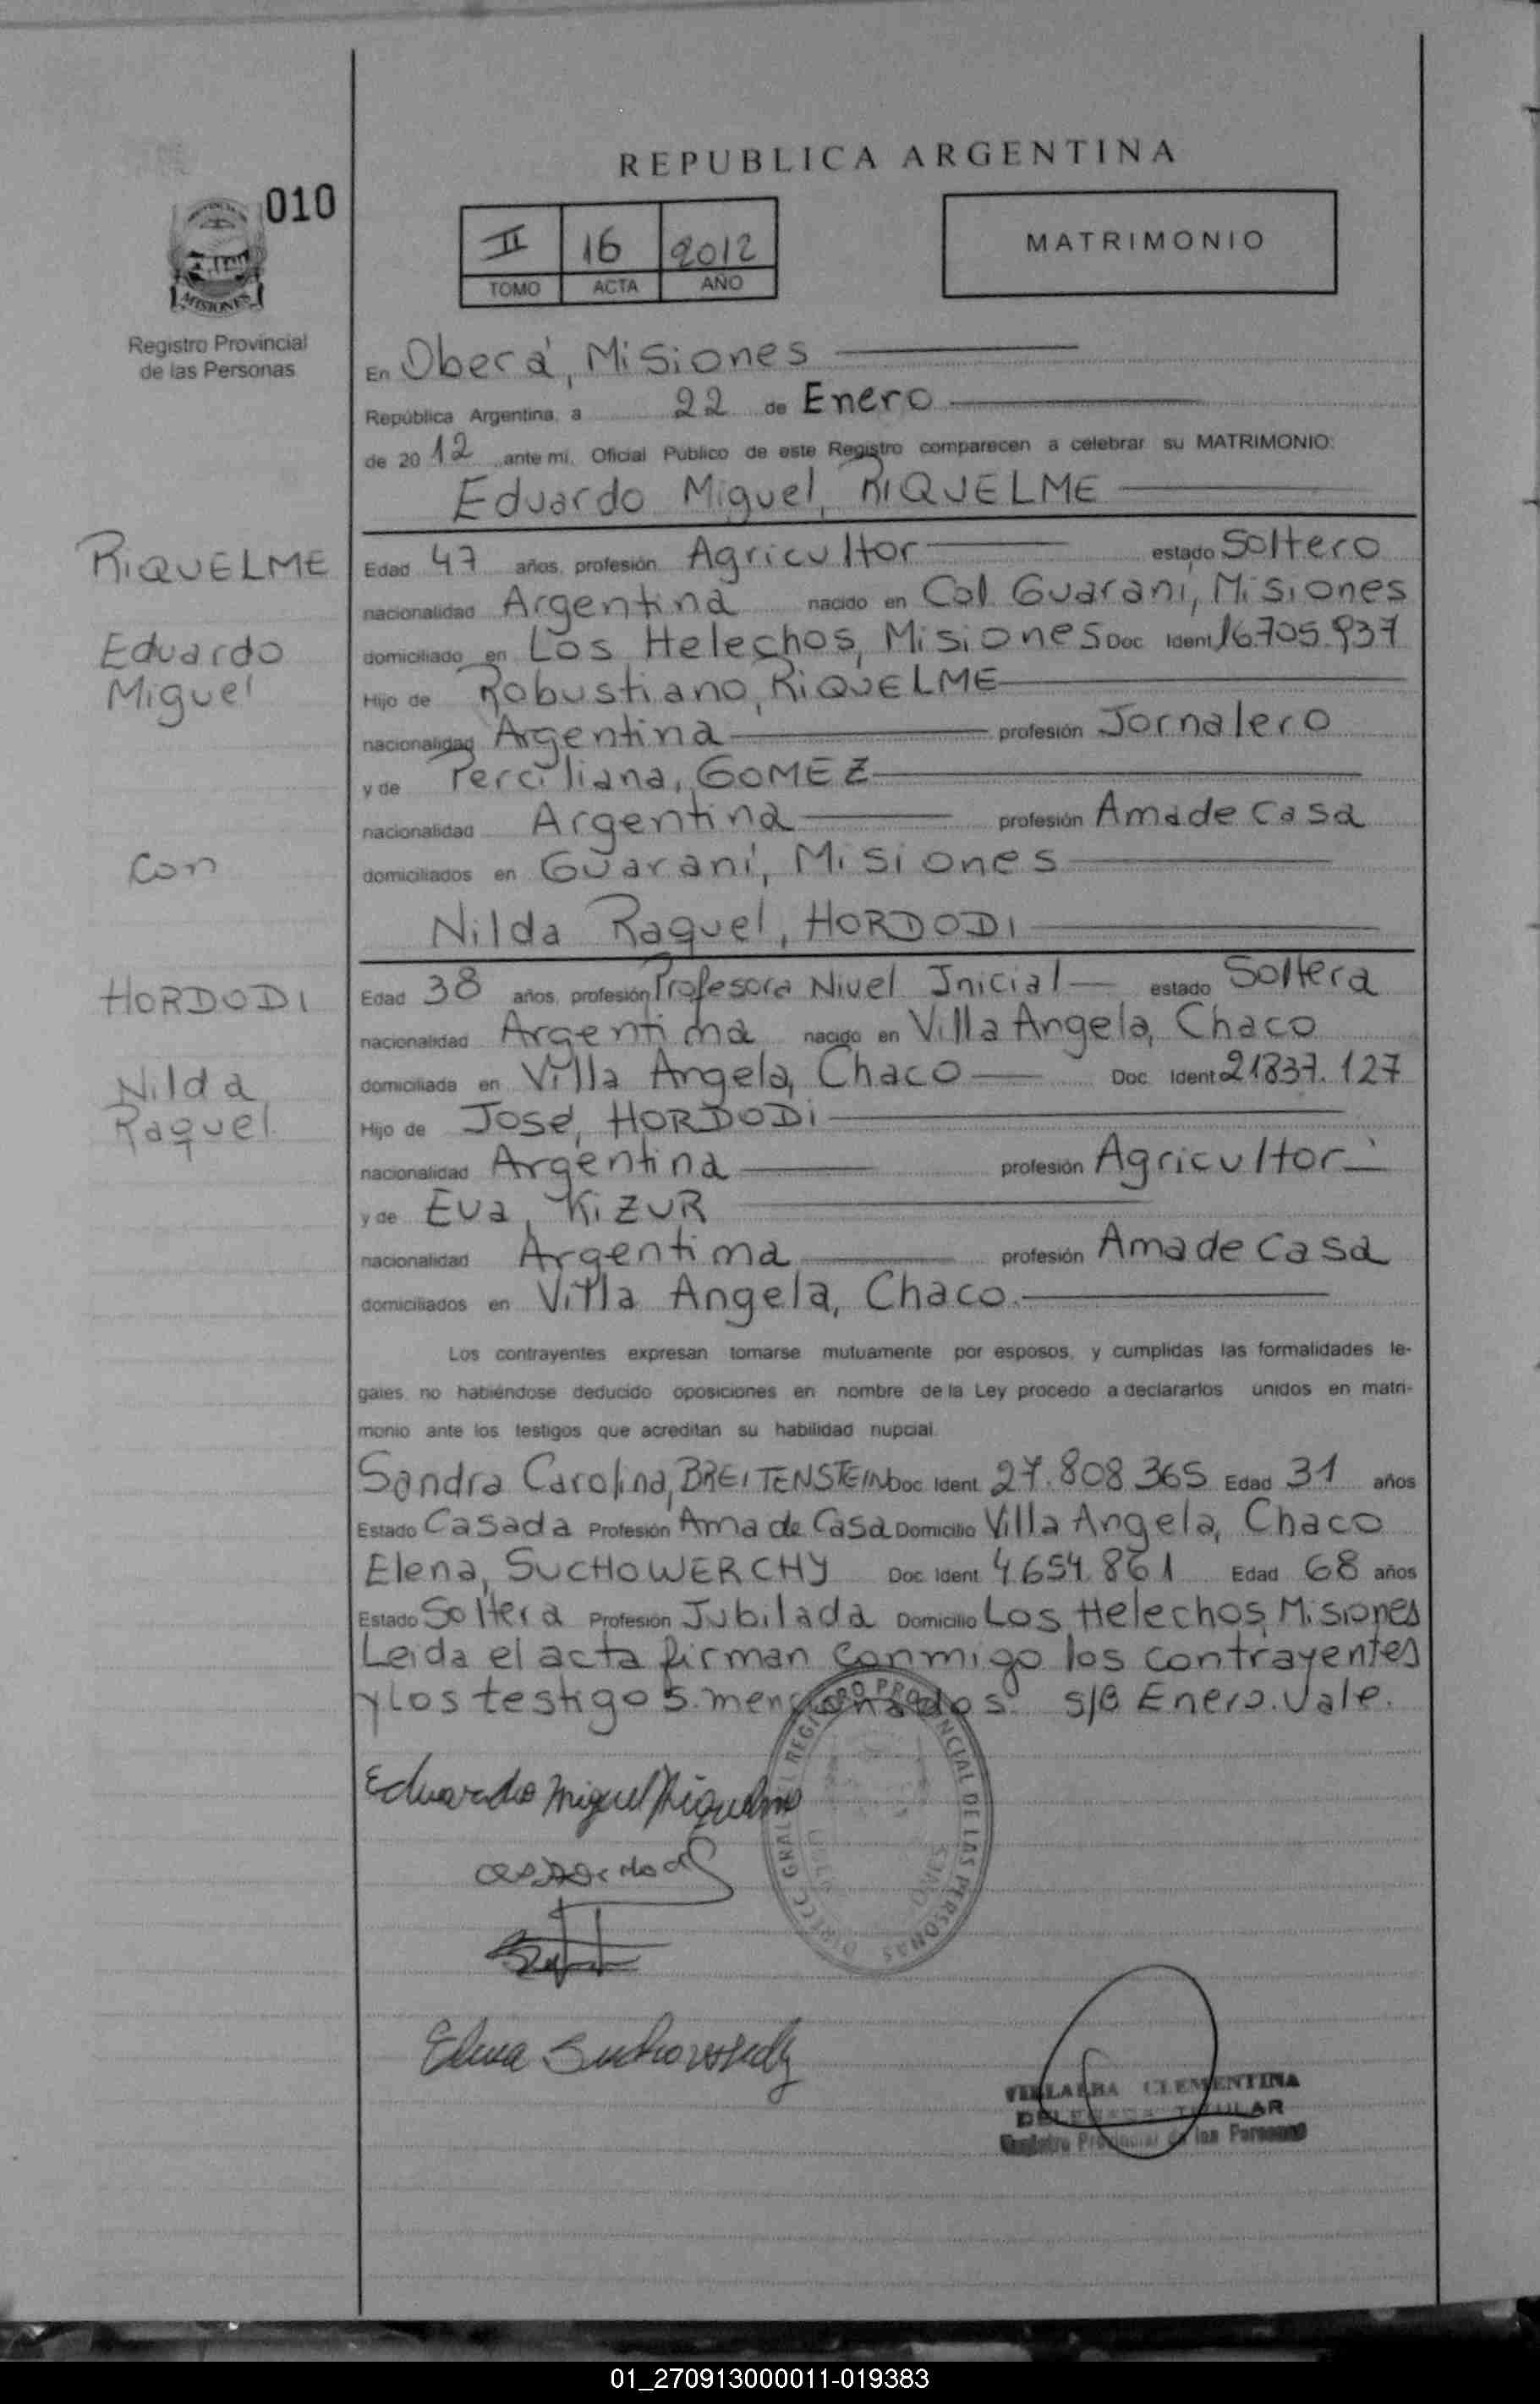 REPUBLICA ARGENTINA
010
II 16 2012
TOMO ACTA AÑO
MATRIMONIO
MISIONES
Registro Provincial
de las Personas
En Oberá, Misiones
República Argentina, a 22 de Enero
de 2012 ante mi, Oficial Público de este Registro comparecen a celebrar su MATRIMONIO:
Eduardo Miguel, RIQUELME
RIQUELME
Eduardo
Miguel
Edad 47 años, profesión Agricultor estado Soltero
nacionalidad Argentina nacido en Col Guaraní, Misiones
domiciliado en Los Helechos, Misiones Doc Ident 16.705.937
Hijo de Robustiano, RIQUELME
nacionalidad Argentina profesión Jornalero
y de Perciliana, GOMEZ
nacionalidad Argentina profesión Ama de Casa
domiciliados en Guaraní, Misiones
Con
Nilda Raquel, HORDODI
HORDODI
Nilda
Raquel
Edad 38 años, profesión Profesora Nivel Inicial estado Soltera
nacionalidad Argentina nacido en Villa Angela, Chaco
domiciliada en Villa Angela, Chaco Doc. Ident 21837.127
Hijo de José, HORDODI
nacionalidad Argentina profesión Agricultor
y de Eva, KIZUR
nacionalidad Argentina profesión Ama de Casa
domiciliados en Villa Angela, Chaco.
Los contrayentes expresan tomarse mutuamente por esposos, y cumplidas las formalidades le-
gales, no habiéndose deducido oposiciones en nombre de la Ley procedo a declararlos unidos en matri-
monio ante los testigos que acreditan su habilidad nupcial.
Sandra Carolina, BREITENSTEIN Doc Ident. 27.808.365 Edad 31 años
Estado Casada Profesión Ama de Casa Domicilio Villa Angela, Chaco
Elena, SUCHOWERCHY Doc. Ident. 4.654.861 Edad 68 años
Estado Soltera Profesión Jubilada Domicilio Los Helechos, Misiones
Leida el acta firman conmigo los contrayentes
y los testigos mencionados. S/B Enero. Vale.
DIRECC GRAL DEL REGISTRO PROVINCIAL DE LAS PERSONAS
Eduardo Miguel Riquelme
Elena
VILLALBA CLEMENTINA
DELEGADA TITULAR
Registro Provincial de las Personas
01_270913000011-019383